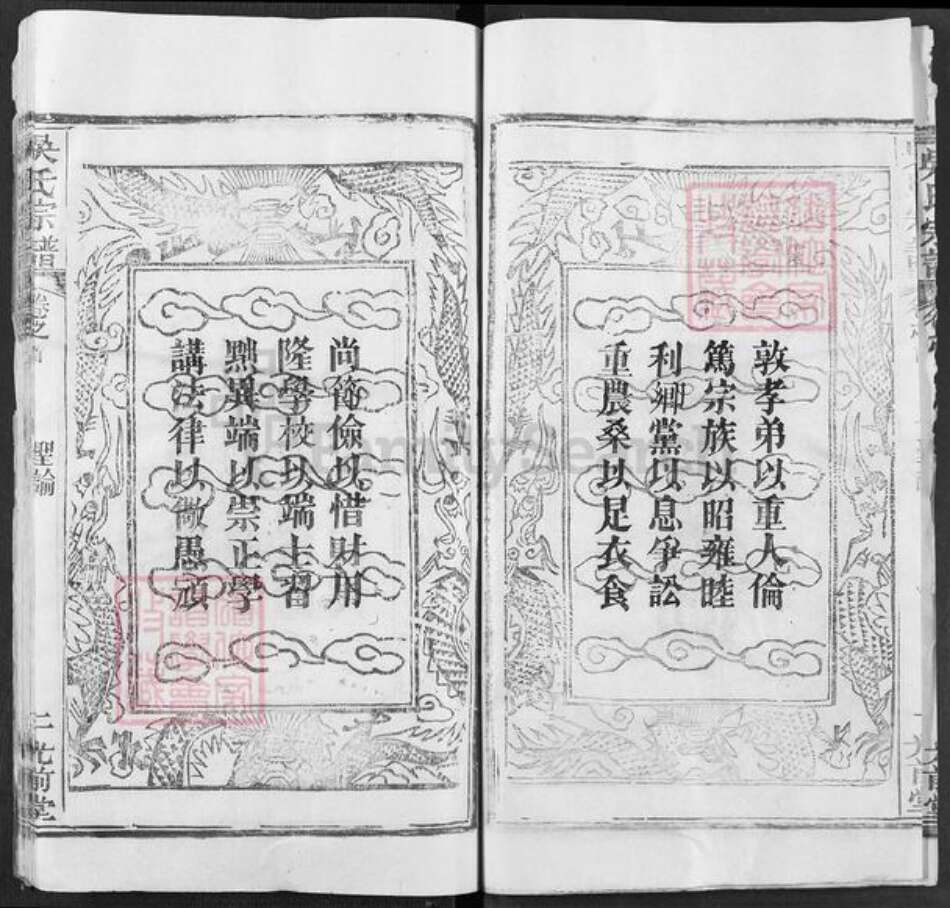 敦孝弟以重人倫
篤宗族以昭雍睦
利鄉黨以息爭訟
重農桑以足衣食
尚節儉以惜財用
隆學校以端士習
黜異端以崇正學
講法律以儆愚頑
吳氏宗譜
卷之首
聖諭
二
光前堂
FamilySearch